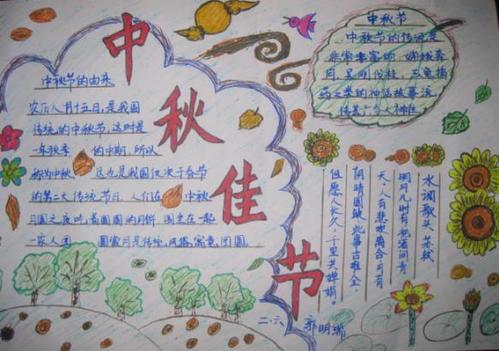 中秋佳节
中秋节的由来
农历八月十五日,是我国
传统的中秋节,这时是
一年秋季 的中期,所以
称为中秋 这也是我国仅次于春节
的第二大传统节日,人们在 中秋
月圆之夜吃着圆圆的月饼,围坐在一起
一家人团 圆赏月是传统风俗,寓意团圆.
中秋节
中秋节的传说是
非常丰富的,嫦娥奔
月,吴刚伐桂,玉兔捣
药之类的神话故事流
传甚广令人神往
水调歌头 苏轼
明月几时有,把酒问青
天,人有悲欢离合,月有
阴晴圆缺,此事古难全,
但愿人长久,千里共婵娟。
二·六 郭明瑞